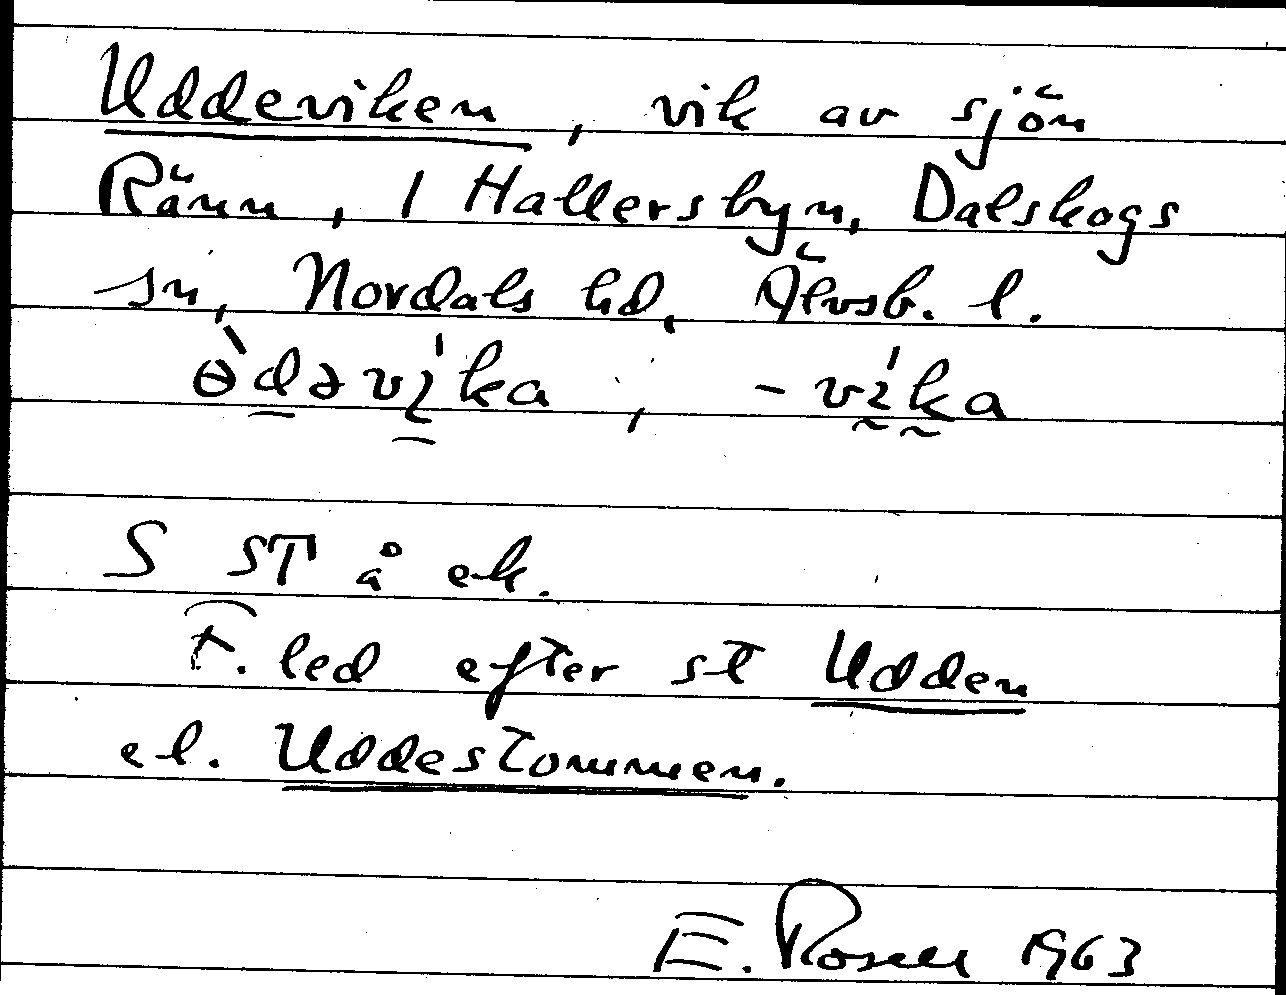 Uddeviken, vik av sjön
Ränn, i Hallersbyn, Dalskogs
sn, Nordals hd, Älvsb. l.
ɵ̀dəvi̗ka, -vi̗ka
S ST å ek.
F. led efter st Udden
el. Uddestommen.
E. Rosell 1963